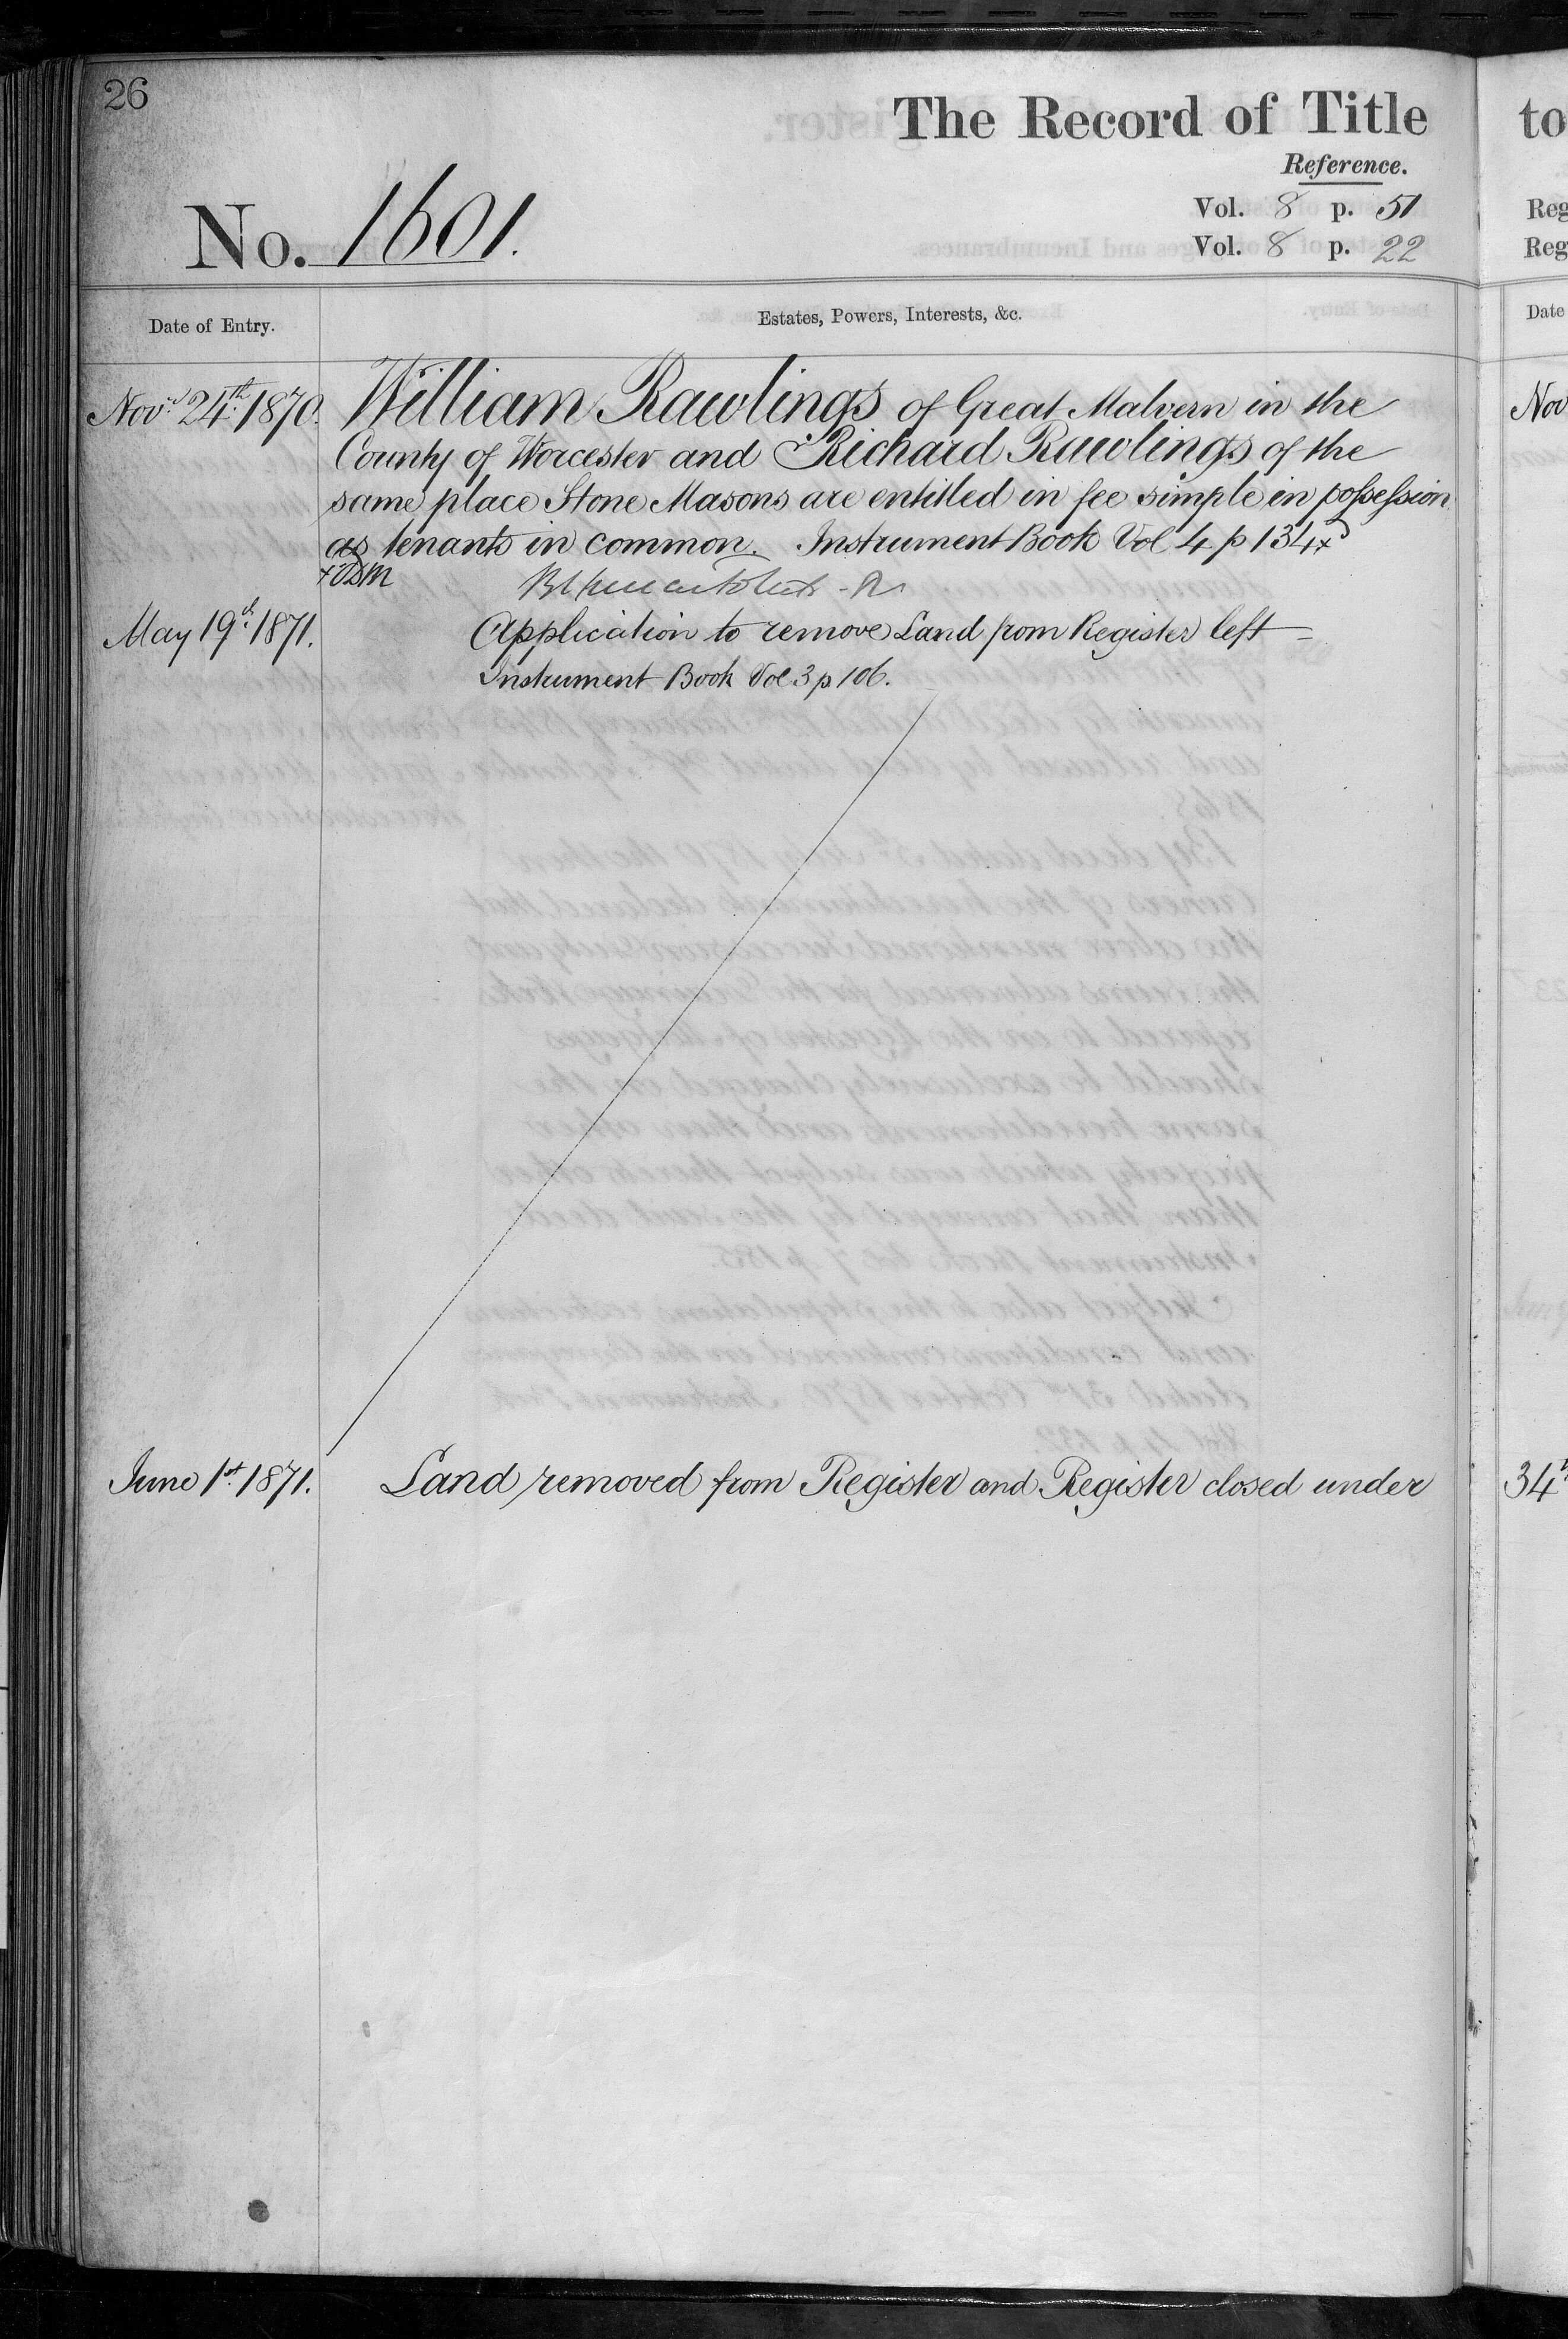 26
The Record of Title
Reference.
No. 1601.
Vol. 8 p. 51
Vol. 8 p. 22
Date of Entry.
Estates, Powers, Interests, &c.
Nov.r 24th 1870. William Rawlings of Great Malvern in the
County of Worcester and Richard Rawlings of the
same place Stone Masons are entitled in fee simple in possession
as tenants in common. Instrument Book Vol 4 p 134 x
May 19th 1871. Application to remove Land from Register left
Instrument Book Vol 3 p 106.
June 1st 1871. Land removed from Register and Register closed under
to
Reg
Reg
Date
Nov
34